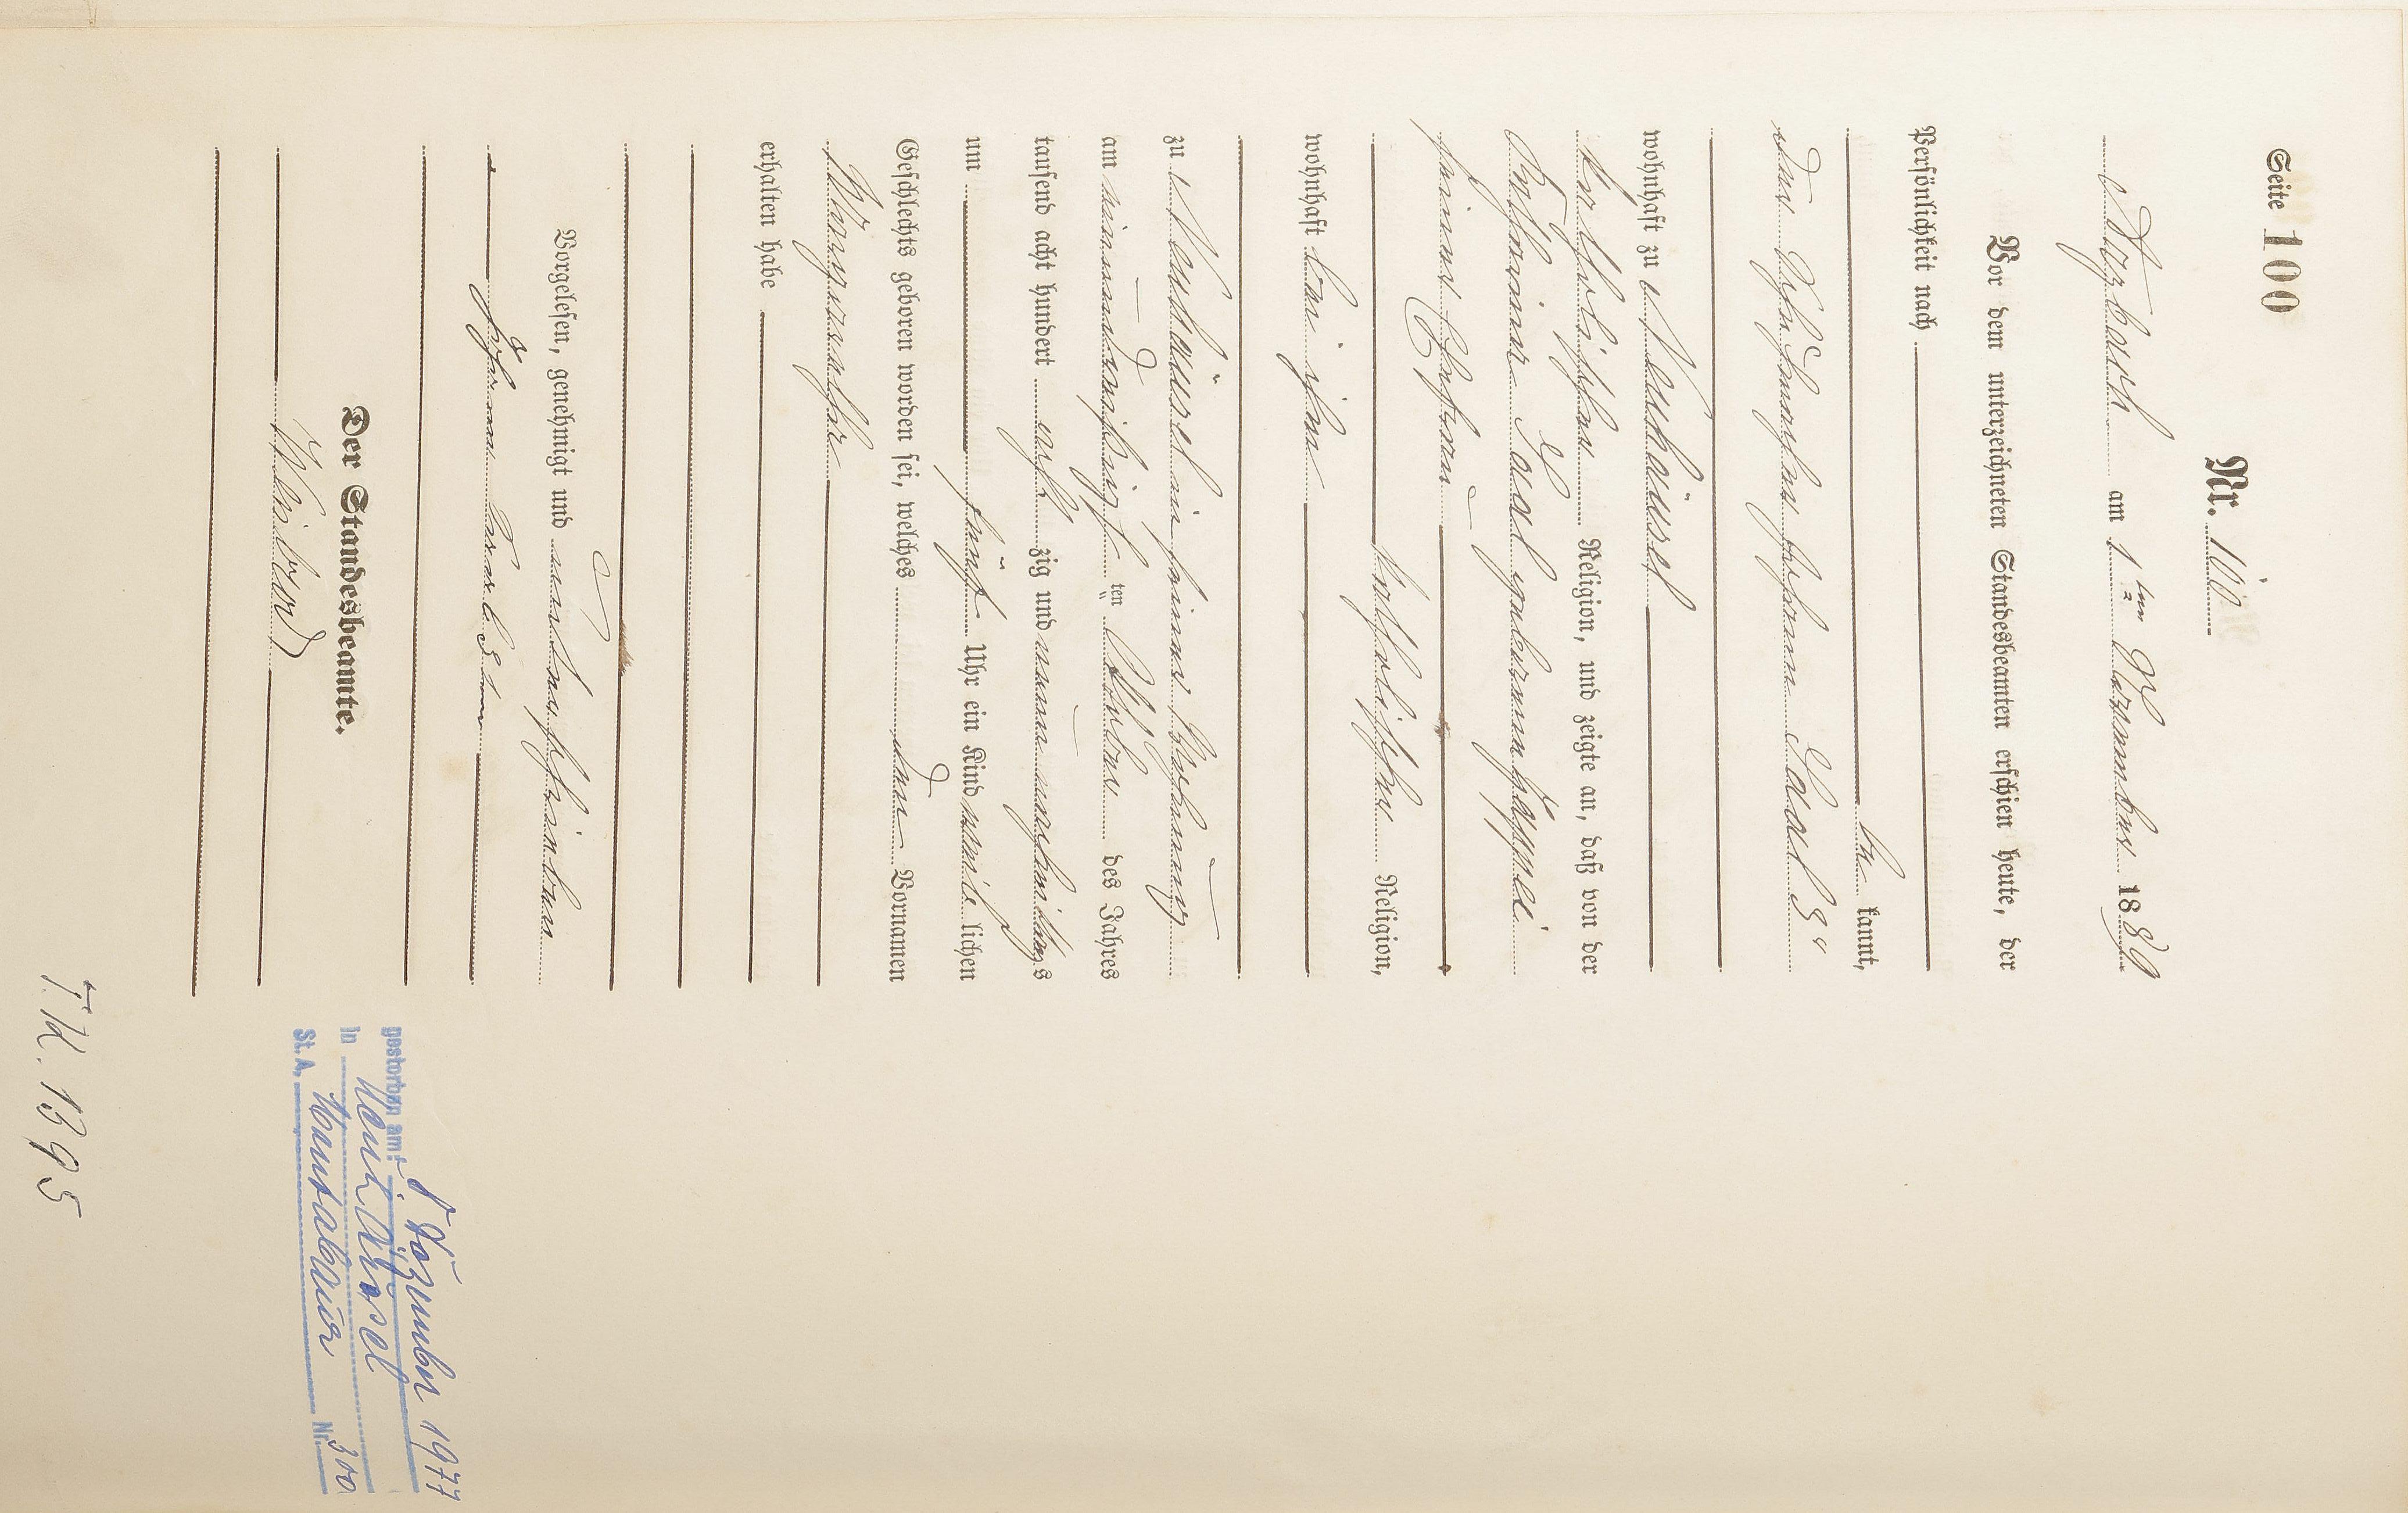 Seite 100
Nr. 100
Arzbach am 1ten November 1889
Vor dem unterzeichneten Standesbeamten erschien heute, der
Persönlichkeit nach
be kannt,
der Johann Saal 3r
wohnhaft zu Neuhäusel
katholischer Religion, und zeigte an, daß von der
Katharina Saal geborenen
seiner Ehefrau
katholischer Religion,
wohnhaft bei ihm
zu Neuhäusel in seiner Wohnung
am einunddreißigsten ten Oktober des Jahres
tausend acht hundert acht zig und neun nachmittags
um fünf Uhr ein Kind weib lichen
Geschlechts geboren worden sei, welches den Vornamen
Margaretha
erhalten habe
Vorgelesen, genehmigt und unterschrieben
Johann Saal 3ter
Der Standesbeamte.
gestorben am: Dezember 1977
in Neuhäusel
St. A. Montabaur Nr. 300
T.K. 1395